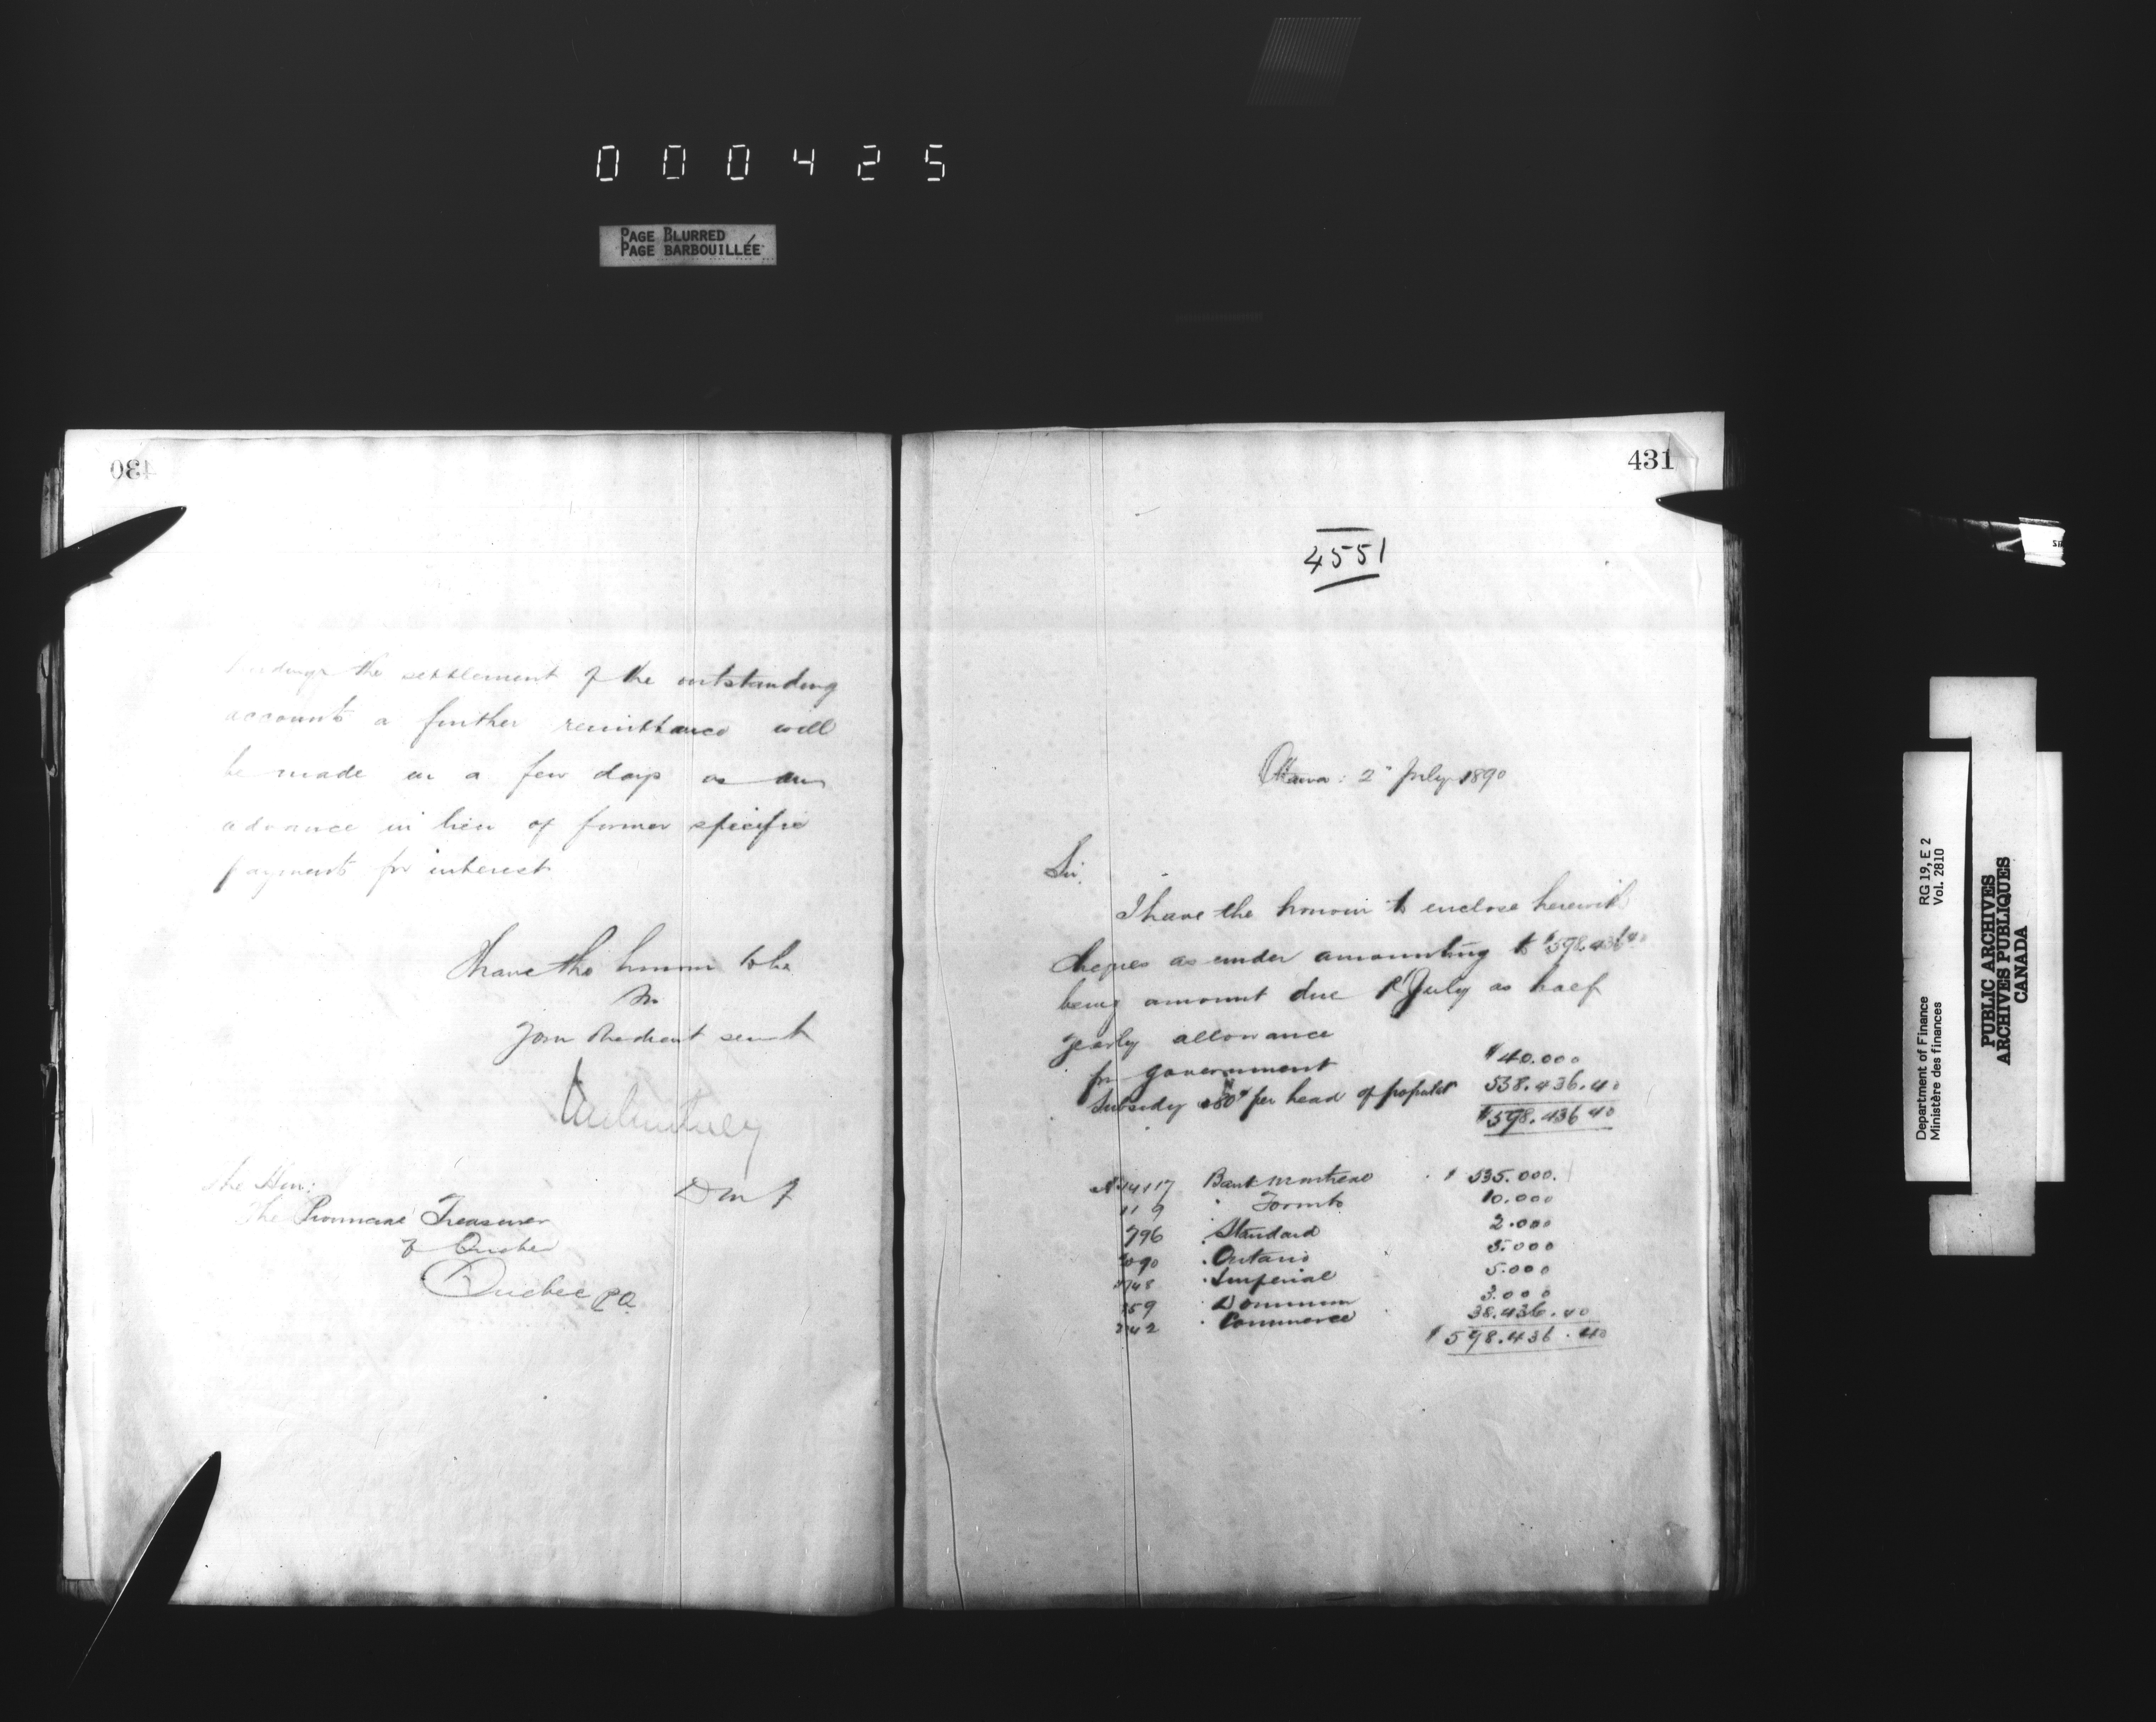 0 0 0 4 2 5
PAGE BLURRED
PAGE BARBOUILLÉE
430
the settlement of the outstanding
accounts a further remittance will
be made in a few days as an
advance in lieu of former specific
payments for interest
I have the honour to be
Sir
Your obedient servt
DMF
The Hon:
The Provincial Treasurer
of Quebec
Quebec P.Q.
431
4551
Ottawa: 2" July 1890
Sir,
I have the honour to enclose herewith
cheques as under amounting to $598.436 40
being amount due 1st July as half
yearly allowance
for government $40.000
Subsidy @ 80c per head of populatn 558.436.40
$598.436 40
14117 Bank Montreal $ 535.000.
119 " Toronto 10.000
796 " Standard 2.000
" Ontario 5.000
" Imperial 5.000
" Dominion 3.000
" Commerce 38.436.40
$598.436.40
Department of Finance RG 19, E 2
Ministère des finances Vol. 2810
PUBLIC ARCHIVES
ARCHIVES PUBLIQUES
CANADA